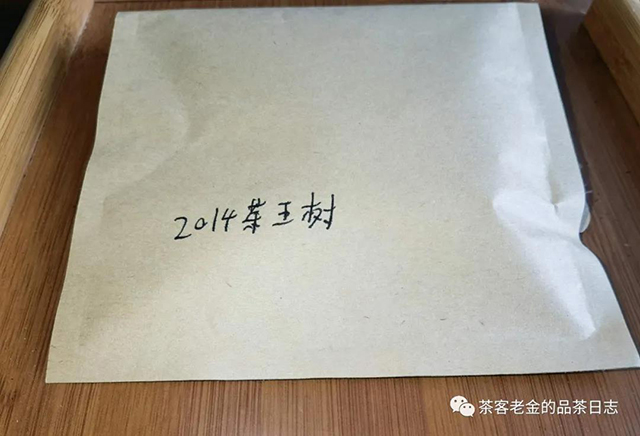 2014茶王树
茶客老金的品茶日志